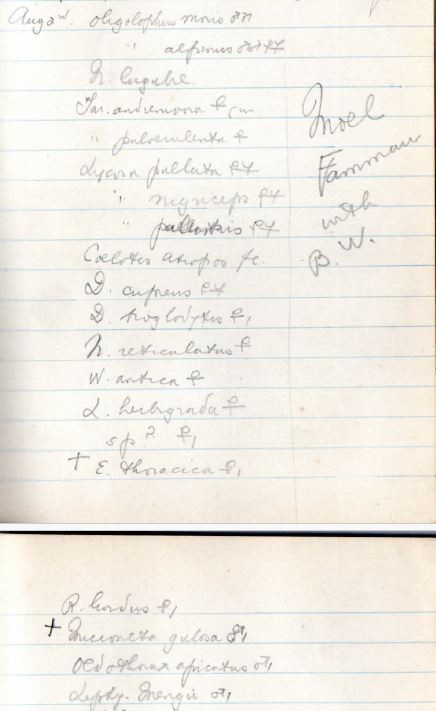 Aug 2 w. Oligolophus morio ♂♂
" alpinus ♂♂♀♀
N. lugubre.
Tar. andrenivora ♀ juv
" pulverulenta ♀
Lycosa pullata ♀♀
" nigriceps ♀♀
" palustris ♀♀
Coelotes atropos fc.
D. cupreus ♀♀
D. troglodytes ♀1
N. reticulatus ♀
W. antica ♀
L. herbigrada ♀
sp? ♀1
+ E. thoracica ♀1
Moel
Fammau
with
B. W.
R. lividus ♀1
+ Microneta gulosa ♂1
Oedothorax apicatus ♂1
Lepthy. Mengii ♂1